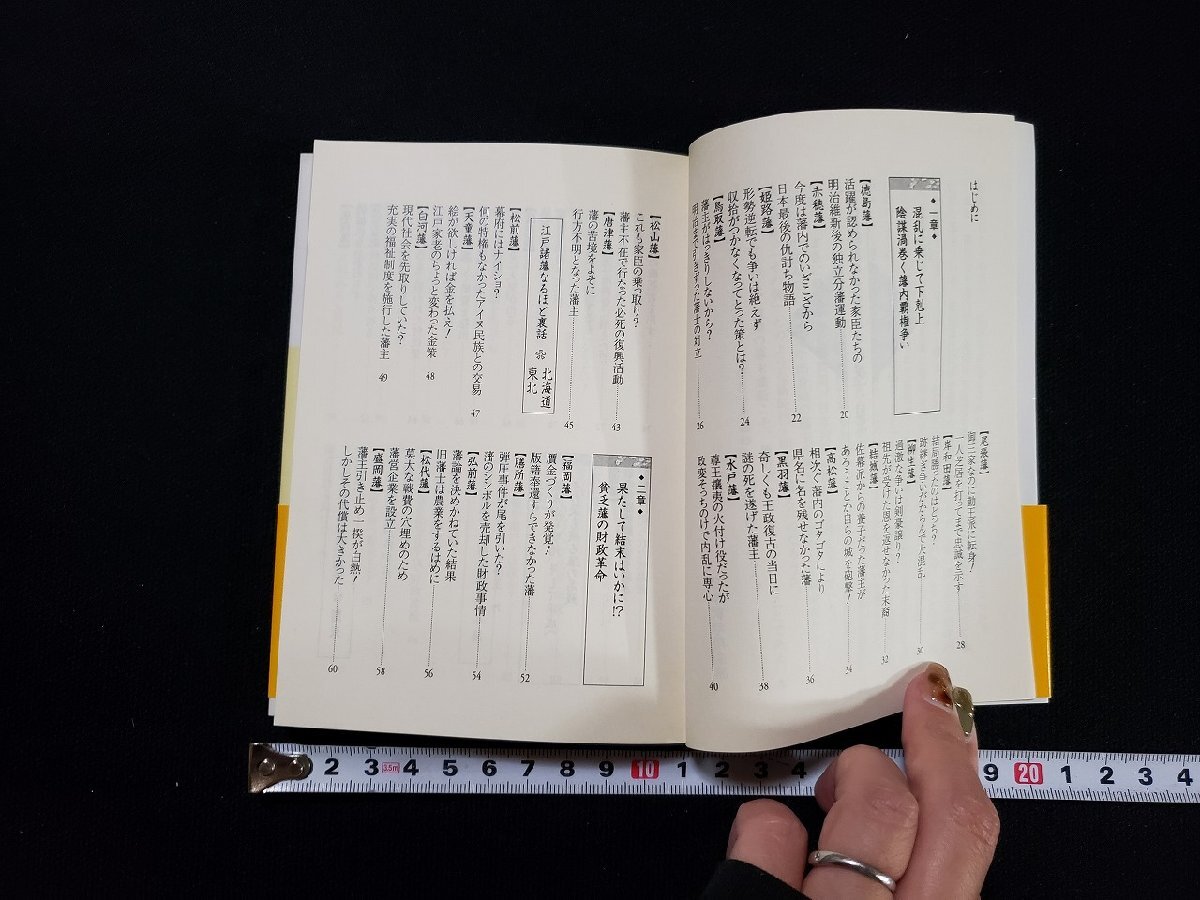 はじめに
◆一章◆
混乱に乗じて下剋上
陰謀渦巻く藩内覇権争い
【徳島藩】
活躍が認められなかった家臣たちの
明治維新後の独立分藩運動
20
【赤穂藩】
今度は藩内でのいざこざから
日本最後の仇討ち物語
22
【姫路藩】
形勢逆転でも争いは絶えず
収拾がつかなくなってとった策とは?
24
【鳥取藩】
藩主がはっきりしないから?
明治まで引きずった藩士の対立
26
【尾張藩】
御三家なのに勤王派に転身!
一人芝居を打ってまで忠誠を示す
28
【岸和田藩】
結局勝ったのはどっち?
跡継ぎ争いがからんで大混乱
30
【柳生藩】
過激な争いは剣豪譲り?
祖先が受けた恩を返せなかった末裔
32
【結城藩】
佐幕派からの養子だった藩主が
あろうことか自らの城を砲撃!
34
【高松藩】
相次ぐ藩内のゴタゴタにより
県名に名を残せなかった藩
36
【黒羽藩】
奇しくも王政復古の当日に
謎の死を遂げた藩主
38
【水戸藩】
尊王攘夷の火付け役だったが
政変そっちのけで内乱に専心
40
【松山藩】
これも家臣の乗っ取り?
藩主不在で行なった必死の復興活動
43
【唐津藩】
藩の苦境をよそに
行方不明となった藩主
45
江戸諸藩なるほど裏話 北海道 東北
【松前藩】
幕府にはナイショ?
何の特権もなかったアイヌ民族との交易
47
【天童藩】
絵が欲しければ金を払え!
江戸家老のちょっと変わった金策
48
【白河藩】
現代社会を先取りしていた?
充実の福祉制度を施行した藩主
49
◆二章◆
果たして結末はいかに!?
貧乏藩の財政革命
【福岡藩】
贋金づくりが発覚!
版籍奉還すらできなかった藩
52
【膳所藩】
弾圧事件が尾を引いた?
藩のシンボルを売却した財政事情
54
【弘前藩】
藩論を決めかねていた結果
旧藩士は農業をするはめに
56
【松代藩】
莫大な戦費の穴埋めのため
藩営企業を設立
58
【盛岡藩】
藩主引き止め一揆が白熱!
しかしその代償は大きかった
60
2 3 3.5m 4 5 6 7 8 9 10 1 2 3 4 9 20 1 2 3 4